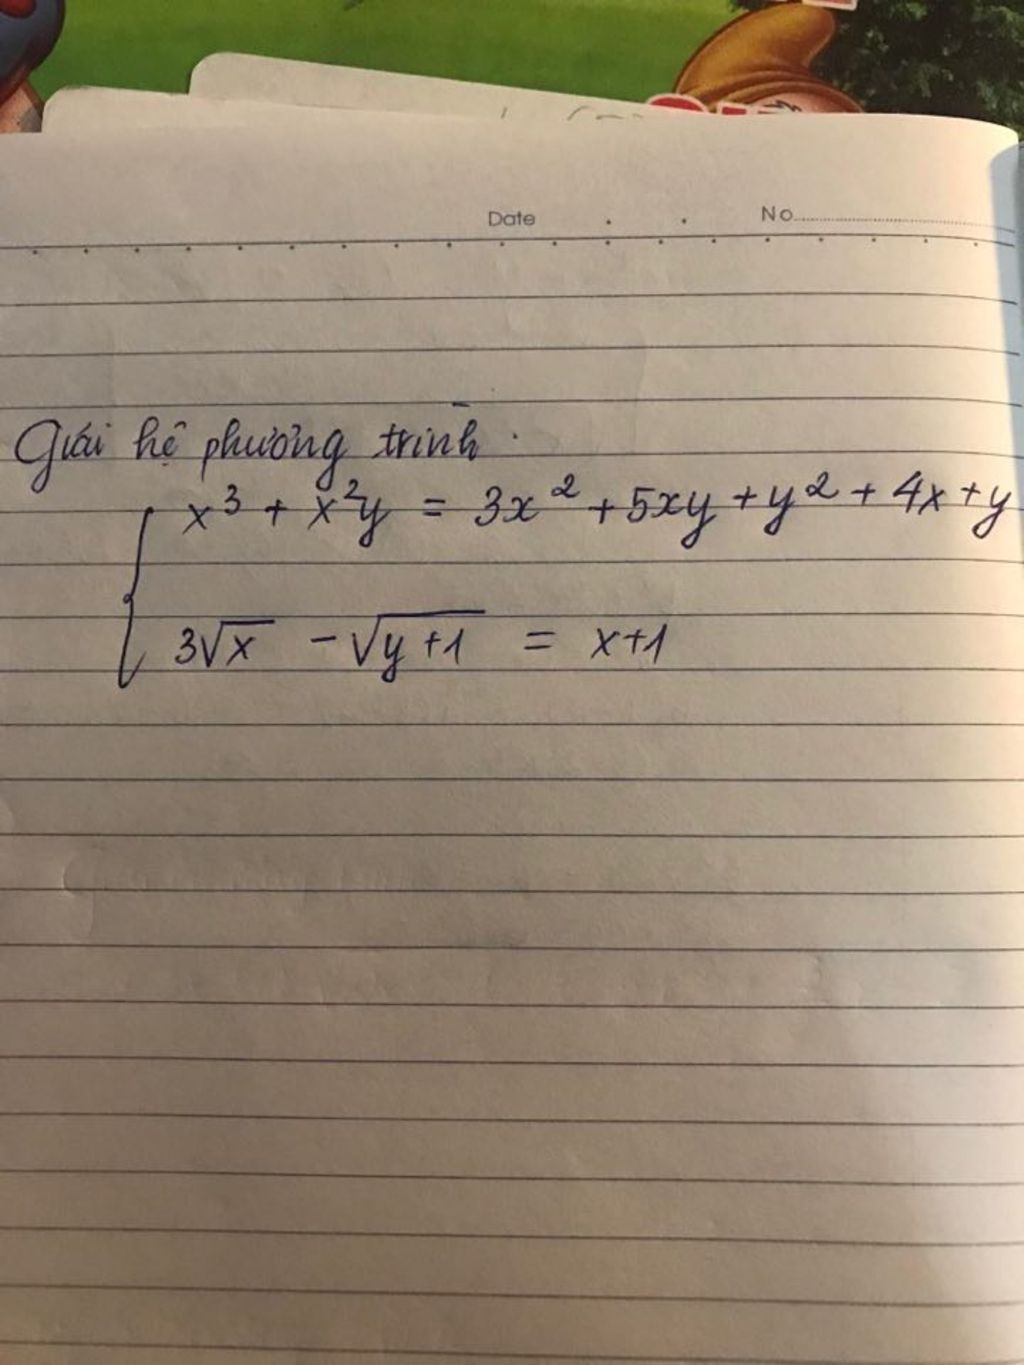 Date . . No
Giải hệ phương trình.
x³ + x²y = 3x² + 5xy + y² + 4x + y
3√x - √(y+1) = x+1